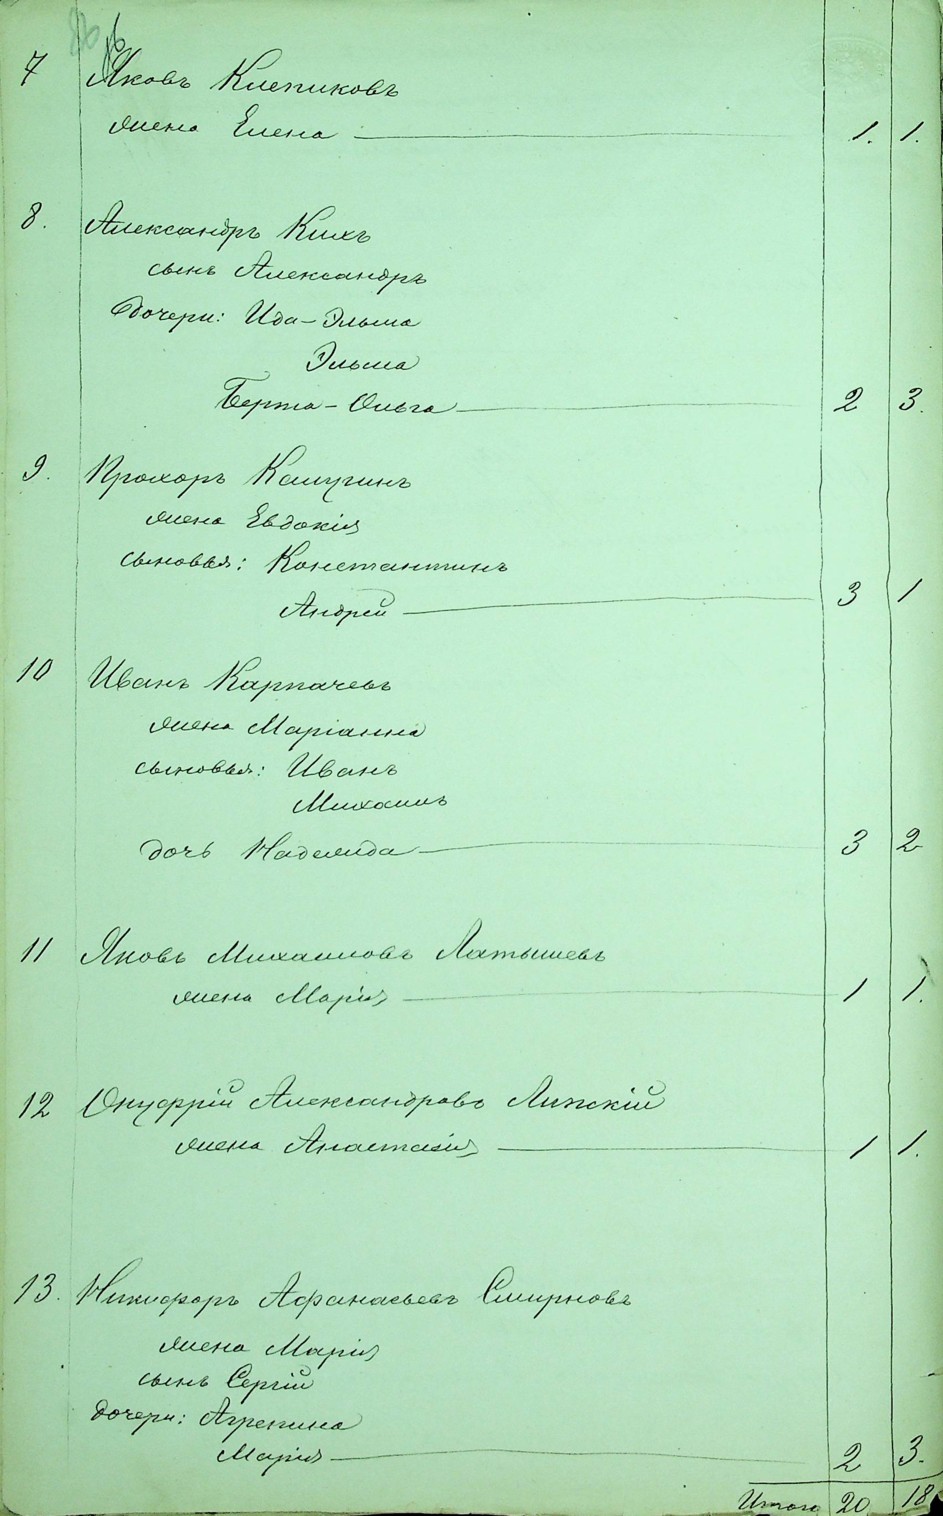 86
7 Яковъ Клепиковъ
жена Елена — 1. 1.
8. Александръ Кихъ
сынъ Александръ
дочери: Ида-Эльма
Эльма
Берта-Ольга — 2 3.
9. Прохоръ Калугинъ
жена Евдокія
сыновья: Константинъ
Андрей — 3 1
10 Иванъ Карпачевъ
жена Маріанна
сыновья: Иванъ
Михаилъ
дочь Надежда — 3 2
11 Яковъ Михаиловъ Латышевъ
жена Марія — 1 1.
12 Онуфрій Александровъ Липскій
жена Анастасія — 1 1.
13. Никифоръ Афанасьевъ Смирновъ
жена Марія
сынъ Сергій
дочери: Агрепина
Марія — 2 3.
Итого 20 18